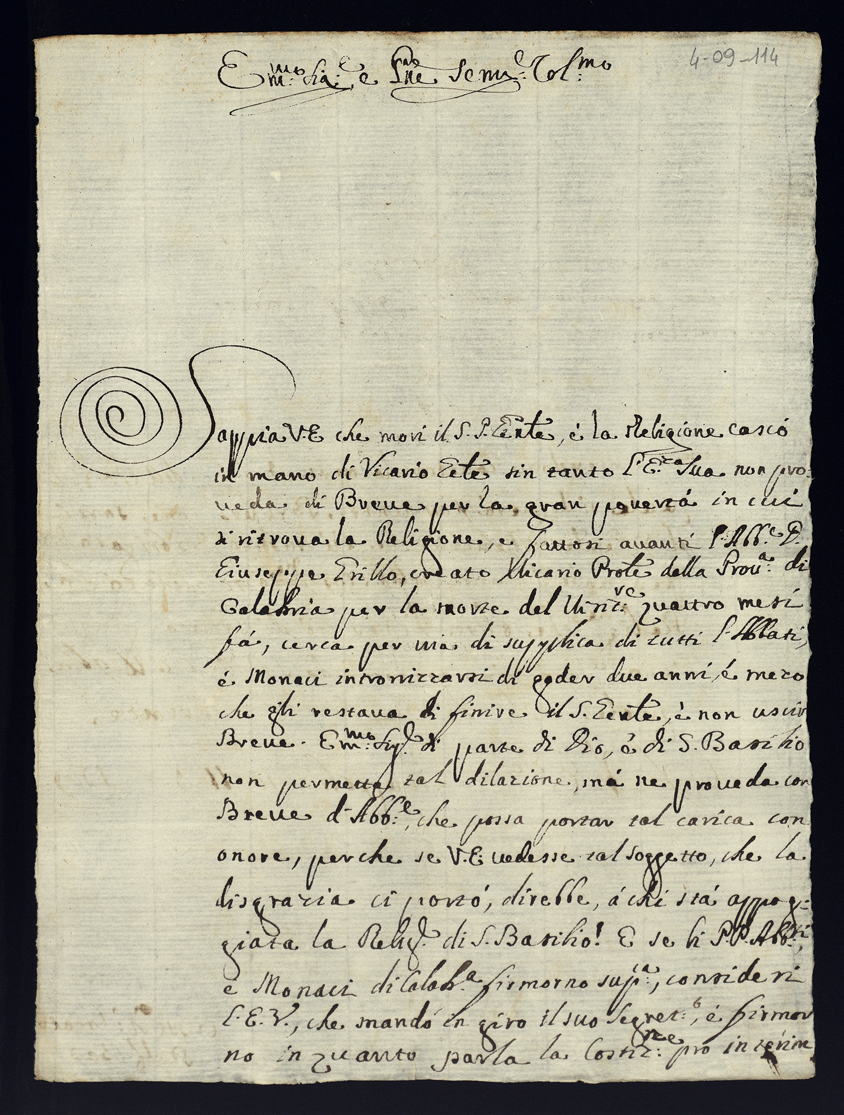 4-09-114
E.mo Sig.e e P.ne Sem.e Col.mo
Sappia V.E che morì il S. P. Gen̄le, é la Religione cascò
in mano di Vicario Gēle sin tanto l'E.za Sua non pro:
ueda di Breue per la gran pouertá in cui
si ritroua la Religione, e fattosi auanti l'Abb.e D.
Giuseppe Grillo, creato Vicario Prōle della Prou.a di
Calabria per la morte del quattro mesi
fá, cerca per uia di supplica di tutti l'Abbati,
é Monaci intronizzarsi di goder due anni, é mezo
che gli restaua di finire il S. Gen̄le, é non uscir
Breue. E.mo Sig.e di parte di Dio, é di S. Basilio
non permetta tal dilazione, má ne proueda con
Breue d'Abb.e, che possa portar tal carica con
onore, perche se V.E. uedesse tal soggetto, che la
disgrazia ci portó, direbbe, á chi stá appog:
giata la Relig.e di S. Basilio! E se li P.P. Abb.ti,
e Monaci di Calab.a firmorno sup.ca, consideri
l'E.V., che mandó in giro il suo Segret.o, é firmor
no in quanto parla la Costit.ne pro interim